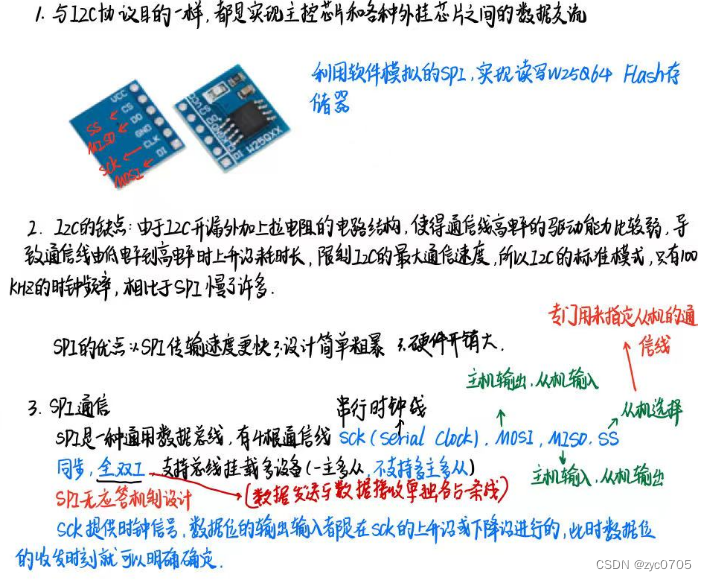 1. 与I2C协议目的一样，都是实现主控芯片和各种外挂芯片之间的数据交流
利用软件模拟的SPI，实现读写W25Q64 Flash存
储器
VCC
SS CS
MISO DO
GND
SCK CLK
MOSI DI
VCC
CS
DO
DI
W25QXX
2. I2C的缺点：由于I2C开漏外加上拉电阻的电路结构，使得通信线高电平的驱动能力比较弱，导
致通信线由低电平到高电平时上升沿耗时长，限制I2C的最大通信速度，所以I2C的标准模式，只有100
KHZ的时钟频率，相比于SPI慢了许多.
SPI的优点：1.SPI传输速度更快 2.设计简单粗暴 3.硬件开销大.
专门用来指定从机的通
信线
主机输出，从机输入
3. SPI通信
串行时钟线
从机选择
SPI是一种通用数据总线，有4根通信线 SCK(Serial Clock)，MOSI，MISO，SS
同步，全双工，支持总线挂载多设备(一主多从，不支持多主多从)
主机输入，从机输出
SPI无应答机制设计
(数据发送与数据接收单独各占一条线)
SCK提供时钟信号，数据位的输出输入都是在SCK的上升沿或下降沿进行的，此时数据位
的收发时刻就可以明确确定.
CSDN @zyc0705